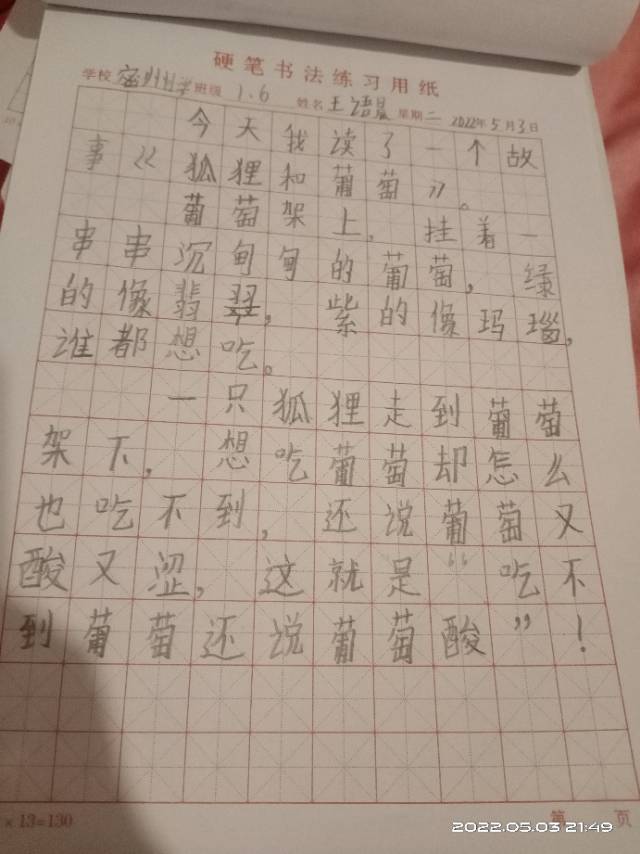 硬笔书法练习用纸
学校 密州小学 班级 1.6 姓名 王语晨 星期二 2022年5月3日
今天我读了一个故
事《狐狸和葡萄》。
葡萄架上,挂着一
串串沉甸甸的葡萄,绿
的像翡翠,紫的像玛瑙,
谁都想吃。
一只狐狸走到葡萄
架下,想吃葡萄却怎么
也吃不到,还说葡萄又
酸又涩,这就是“吃不
到葡萄还说葡萄酸”!
×13=130
第 页
2022.05.03 21:49